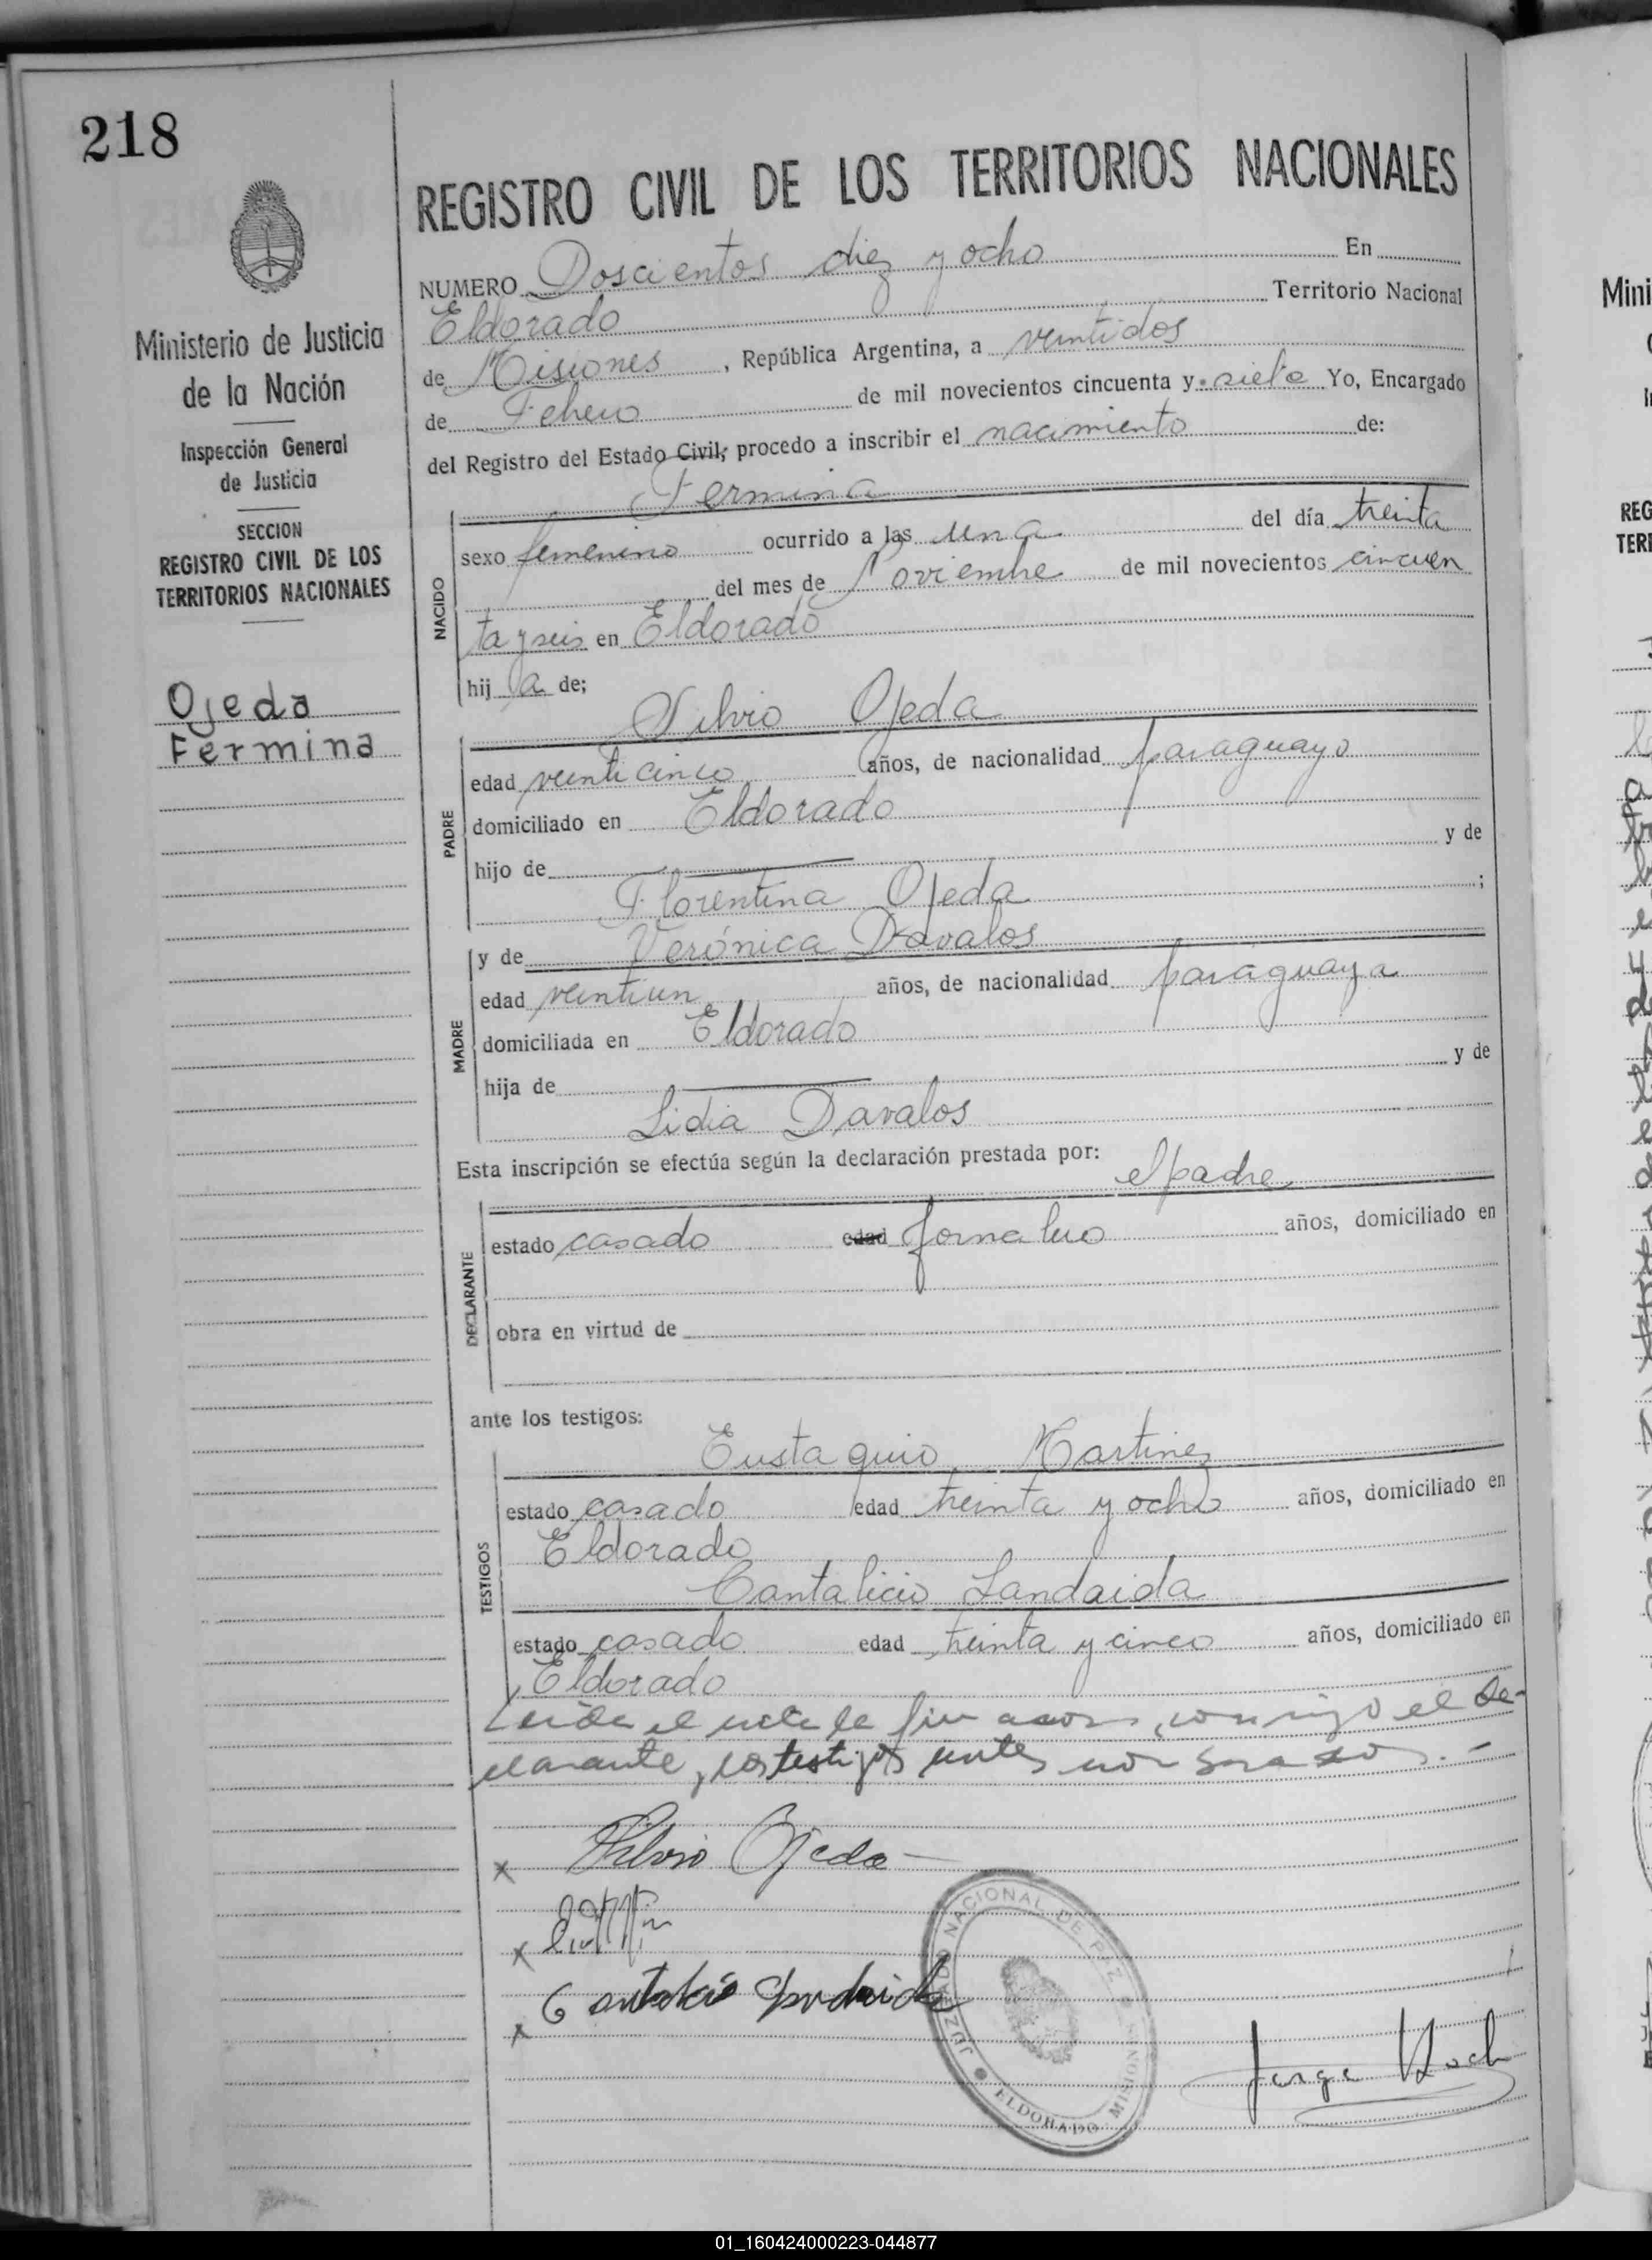 218
REGISTRO CIVIL DE LOS TERRITORIOS NACIONALES
Ministerio de Justicia
de la Nación
Inspección General
de Justicia
SECCION
REGISTRO CIVIL DE LOS
TERRITORIOS NACIONALES
Ojeda
Fermina
NUMERO Doscientos diez y ocho En
Eldorado Territorio Nacional
de Misiones, República Argentina, a veintidos
de Febrero de mil novecientos cincuenta y siete Yo, Encargado
del Registro del Estado Civil, procedo a inscribir el nacimiento de:
Fermina
NACIDO
sexo femenino ocurrido a las una del día treinta
del mes de Noviembre de mil novecientos cincuen
ta y seis en Eldorado
hij a de;
Silvio Ojeda
PADRE
edad veinticinco años, de nacionalidad paraguayo
domiciliado en Eldorado
hijo de y de
Florentina Ojeda ;
y de Verónica Davalos
MADRE
edad veintiun años, de nacionalidad paraguaya
domiciliada en Eldorado
hija de y de
Lidia Davalos
Esta inscripción se efectúa según la declaración prestada por:
el padre
DECLARANTE
estado casado edad jornalero años, domiciliado en
obra en virtud de
ante los testigos:
Eustaquio Martinez
TESTIGOS
estado casado edad treinta y ocho años, domiciliado en
Eldorado
Cantalicio Landaida
estado casado edad treinta y cinco años, domiciliado en
Eldorado
Leída el acta la firmaron, conmigo el de-
clarante, los testigos
x Silvio Ojeda
x
x Cantalicio Landaida
JUZGADO NACIONAL DE PAZ
ELDORADO MISIONES
Jorge Koch
Mini
REG
TERR
01_160424000223-044877